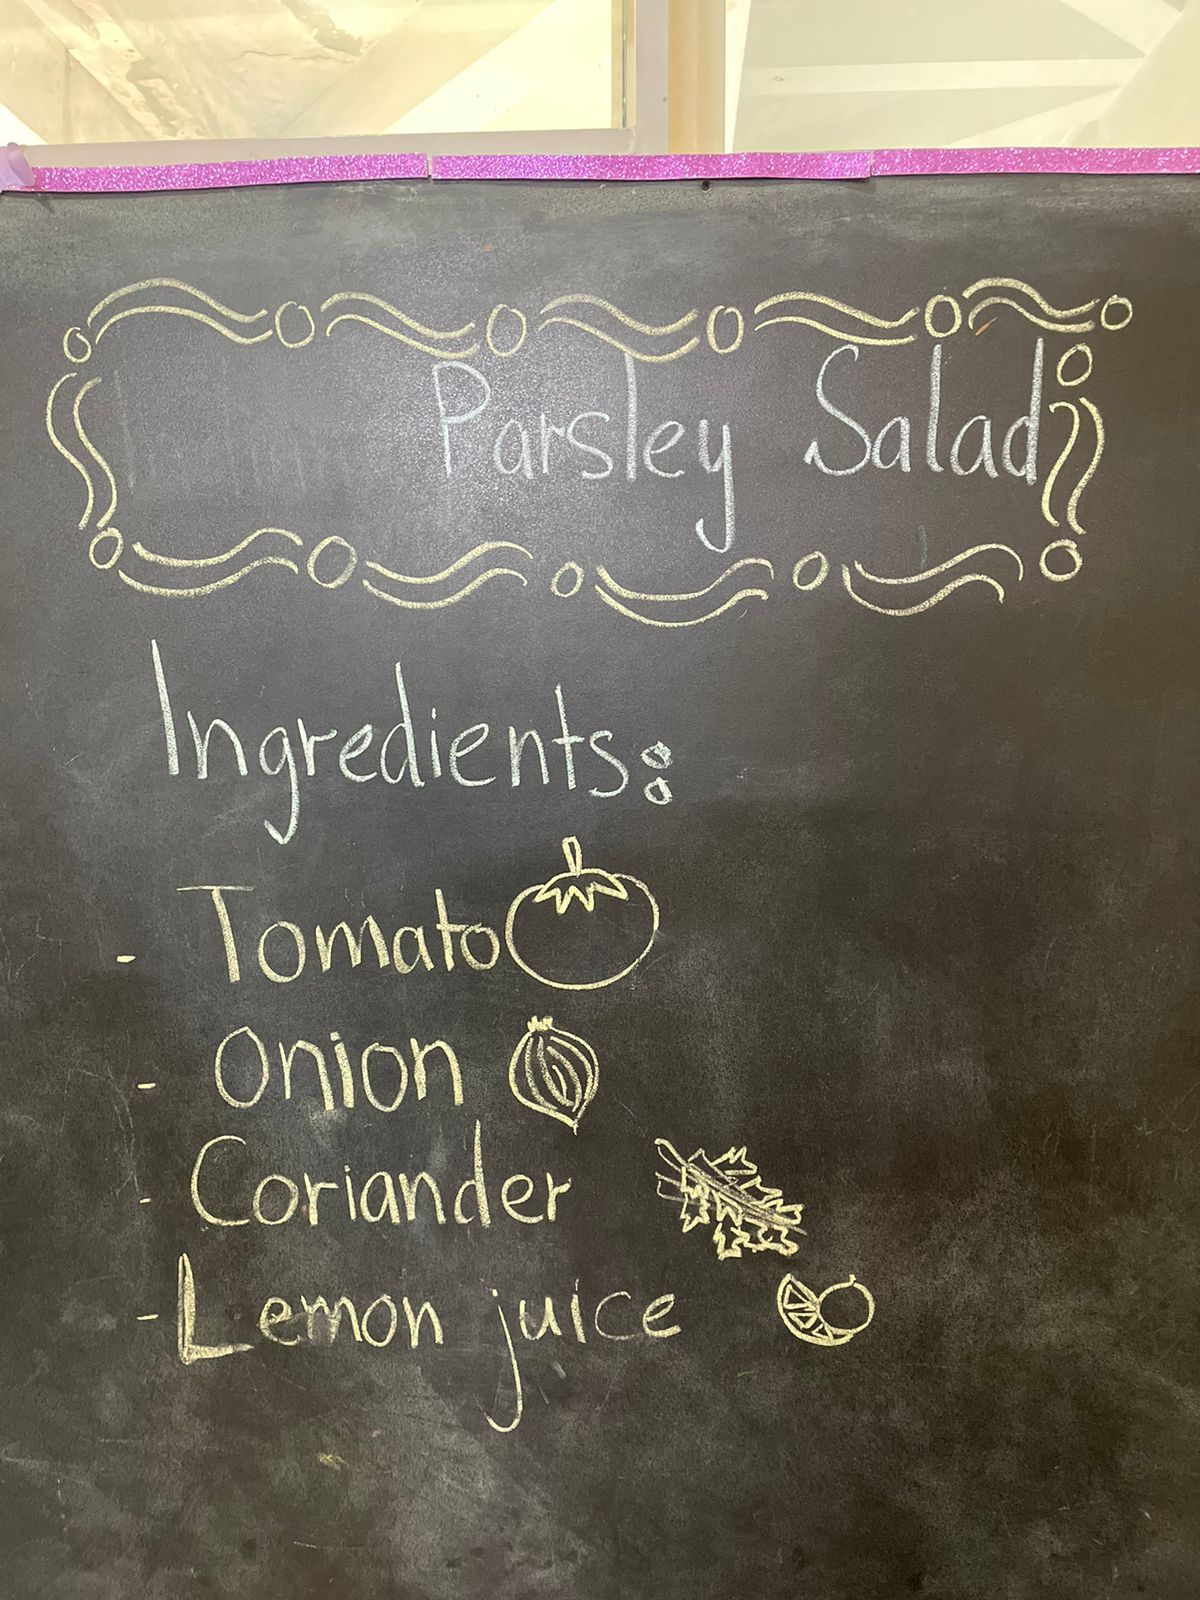 Parsley Salad
Ingredients:
- Tomato
- Onion
- Coriander
- Lemon juice